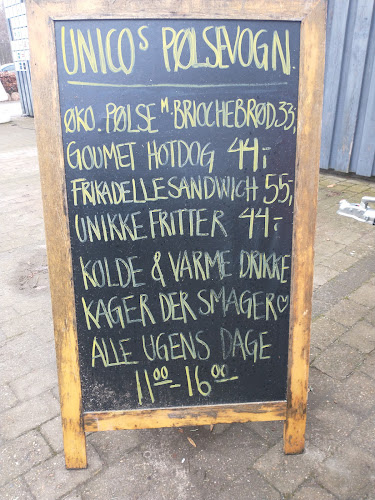 UNICOS PØLSEVOGN.
ØKO. PØLSE M. BRIOCHEBRØD 33,-
GOUMET HOTDOG 44,-
FRIKADELLESANDWICH 55,-
UNIKKE FRITTER 44,-
KOLDE & VARME DRIKKE
KAGER DER SMAGER♡
ALLE UGENS DAGE
1100-16.00